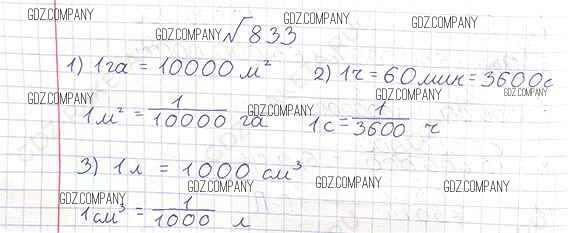 GDZ.COMPANY GDZ.COMPANY GDZ.COMPANY
GDZ.COMPANY √833
1) 1га = 10000 м² 2) 1ч = 60мин = 3600с
GDZ.COMPANY GDZ.COMPANY GDZ.COMPANY
1м² = 1/10000 га GDZ.COMPANY 1с = 1/3600 ч
3) 1л = 1000 см³
GDZ.COMPANY GDZ.COMPANY GDZ.COMPANY GDZ.COMPANY
1см³ = 1/1000 л